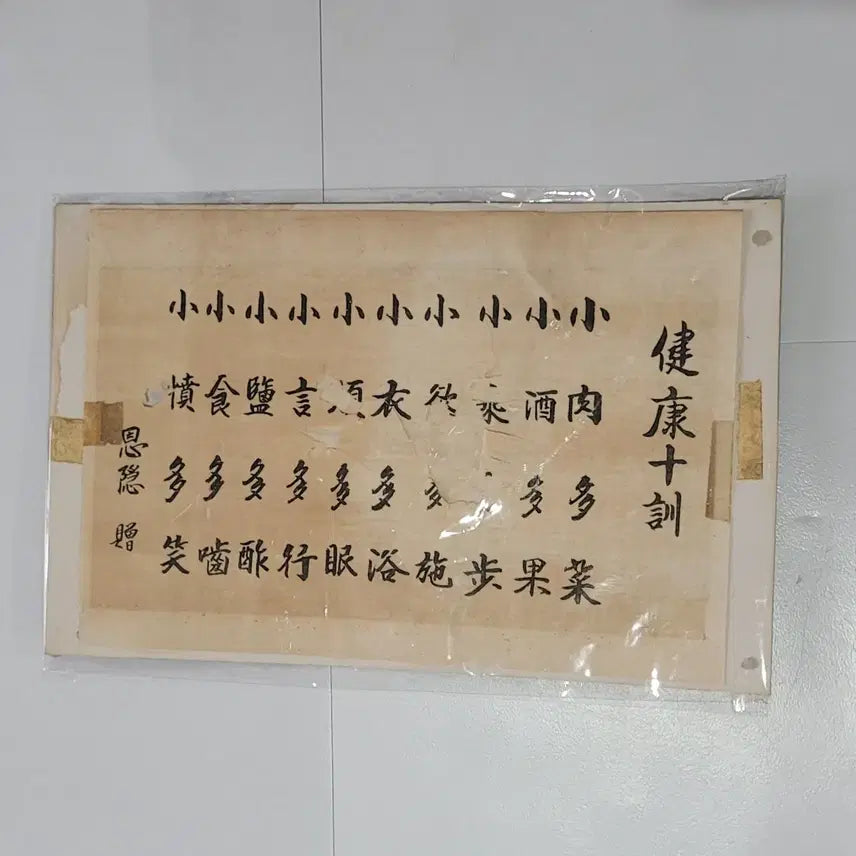 健康十訓
小肉多菜
小酒多果
小乘 步
小欲多施
小衣多浴
小煩多眠
小言多行
小鹽多酢
小食多嚙
小憤多笑
恩隱 贈